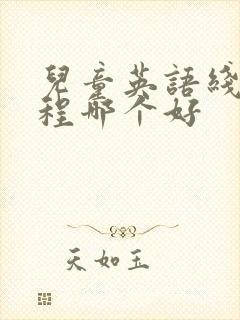 兒童英語綫
程哪个好
天如玉